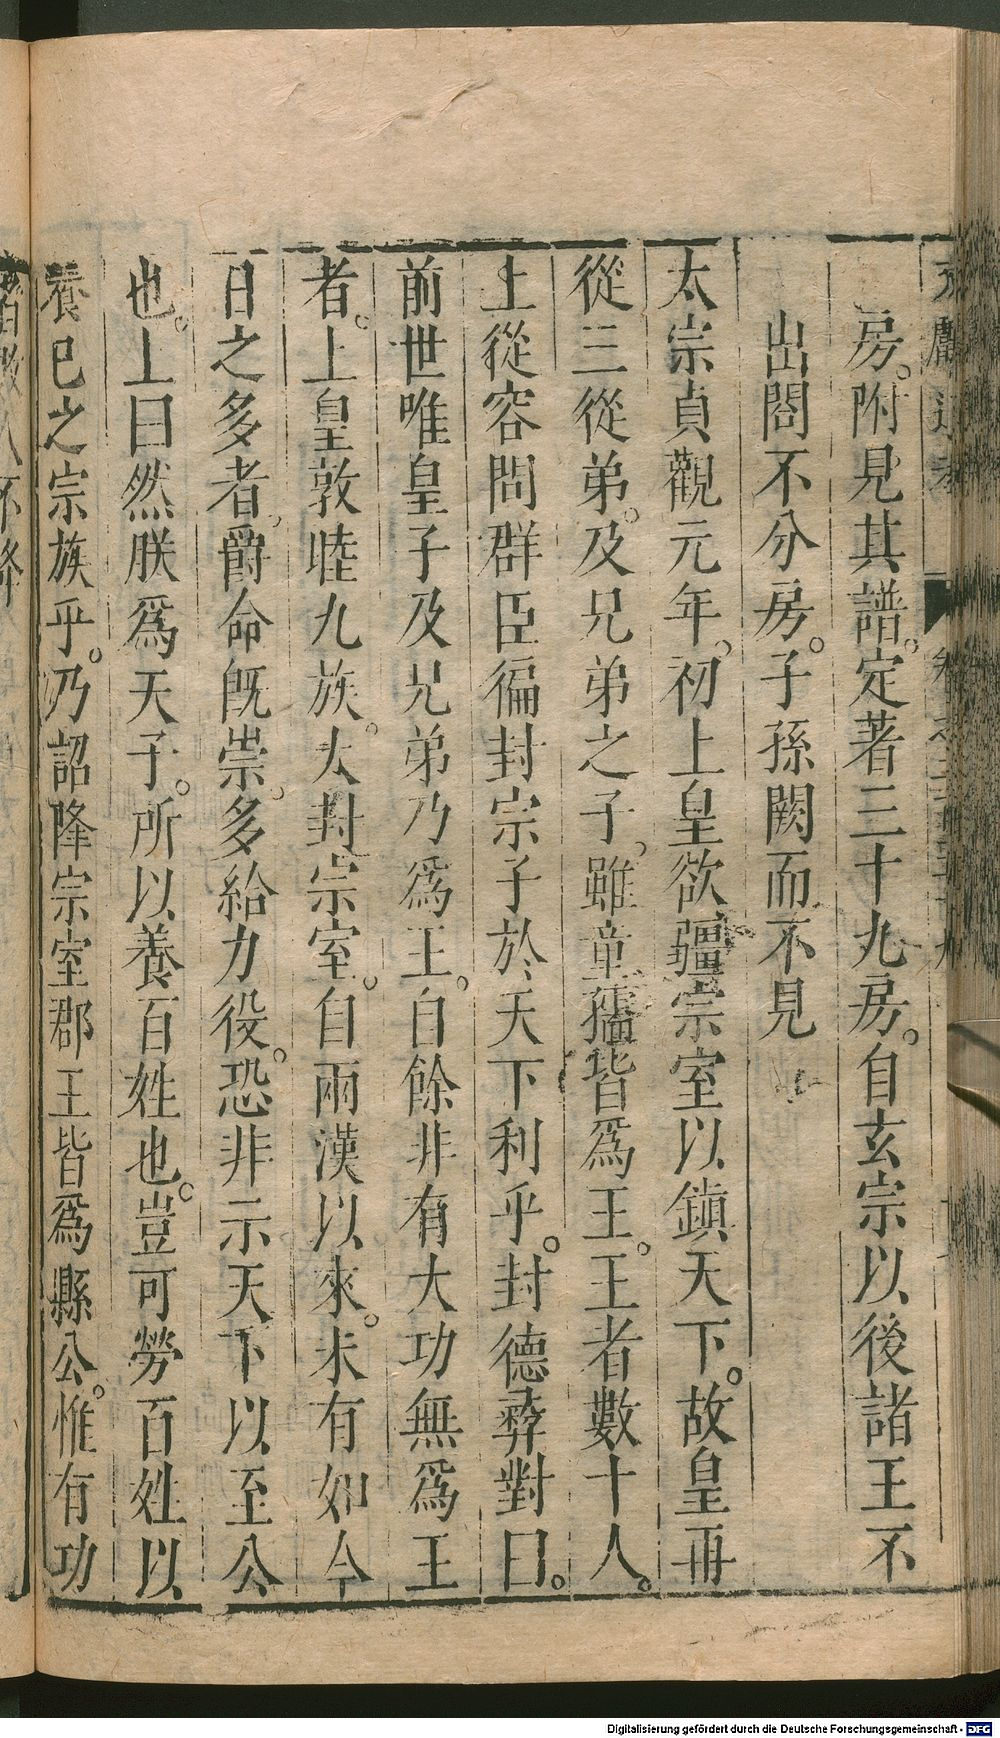 房。附見其譜。定著三十九房。自玄宗以後諸王不
出閤不分房。子孫闕而不見
太宗貞觀元年。初上皇欲彊宗室以鎮天下。故皇再
從三從弟。及兄弟之子。雖童孺皆爲王。王者數十人。
上從容問群臣徧封宗子於天下利乎。封德彝對曰。
前世唯皇子及兄弟乃爲王。自餘非有大功無爲王
者。上皇敦睦九族。大封宗室。自兩漢以來。未有如今
日之多者。爵命旣崇。多給力役。恐非示天下以至公
也。上曰然朕爲天子。所以養百姓也。豈可勞百姓以
養己之宗族乎。乃詔降宗室郡王皆爲縣公。惟有功
Digitalisierung gefördert durch die Deutsche Forschungsgemeinschaft - DFG